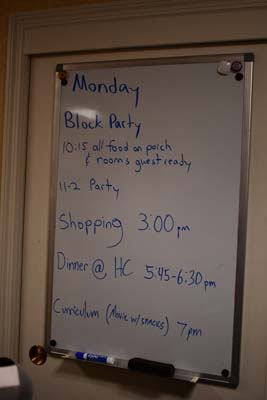 Monday
Block Party
10:15 all food on porch
& rooms guest ready
11-2 Party
Shopping 3:00pm
Dinner @ HC 5:45-6:30pm
Curriculum (Movie w/snacks) 7pm